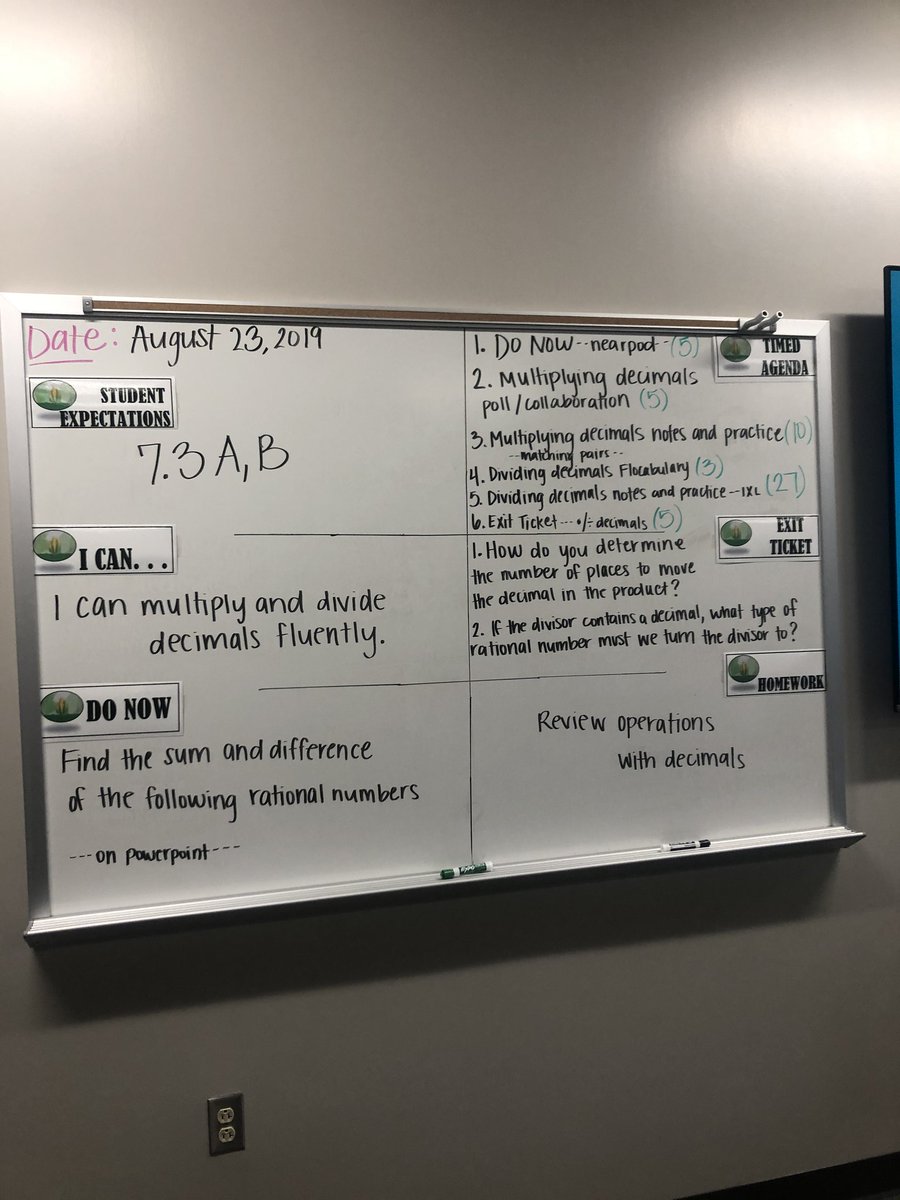 Date: August 23, 2019
STUDENT
EXPECTATIONS
7.3 A, B
I CAN. . .
I can multiply and divide
decimals fluently.
DO NOW
Find the sum and difference
of the following rational numbers
---on powerpoint---
TIMED
AGENDA
1. DO NOW--nearpod-(5)
2. Multiplying decimals
poll/collaboration (5)
3. Multiplying decimals notes and practice (10)
--matching pairs--
4. Dividing decimals Flocabulary (3)
5. Dividing decimals notes and practice--IXL (27)
6. Exit Ticket---•/÷ decimals (5)
EXIT
TICKET
1. How do you determine
the number of places to move
the decimal in the product?
2. If the divisor contains a decimal, what type of
rational number must we turn the divisor to?
HOMEWORK
Review operations
with decimals
EXPO